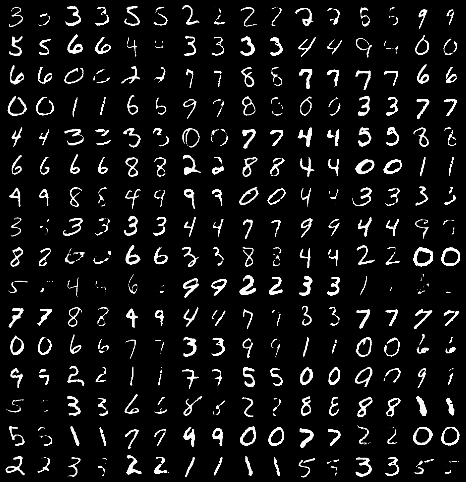 3 3 3 3 5 5 2 2 2 2 2 2 5 5 9 9
5 5 6 6 4 4 3 3 3 3 4 4 9 9 0 0
6 6 0 0 2 2 7 7 8 8 7 7 7 7 6 6
0 0 1 1 6 6 9 9 8 8 0 0 3 3 7 7
4 4 3 3 3 3 0 0 7 7 4 4 5 5 8 8
6 6 6 6 8 8 2 2 8 8 4 4 0 0 1 1
9 9 8 8 4 4 9 9 0 0 4 4 3 3 3 3
3 3 3 3 3 3 4 4 7 7 9 9 4 4 9 9
8 8 0 0 6 6 3 3 8 8 4 4 2 2 0 0
5 4 6 9 9 2 2 3 3 1 6
7 7 8 8 9 9 4 4 7 7 3 3 7 7 7 7
0 0 6 6 7 7 3 3 9 9 1 1 0 0 6 6
9 9 2 2 1 1 7 7 5 5 0 0 9 9 9
5 5 3 3 6 6 8 8 2 2 8 8 8 8 1 1
5 5 1 1 7 7 9 9 0 0 7 7 2 2 0 0
2 2 3 3 2 2 1 1 1 1 5 5 3 3 5 5